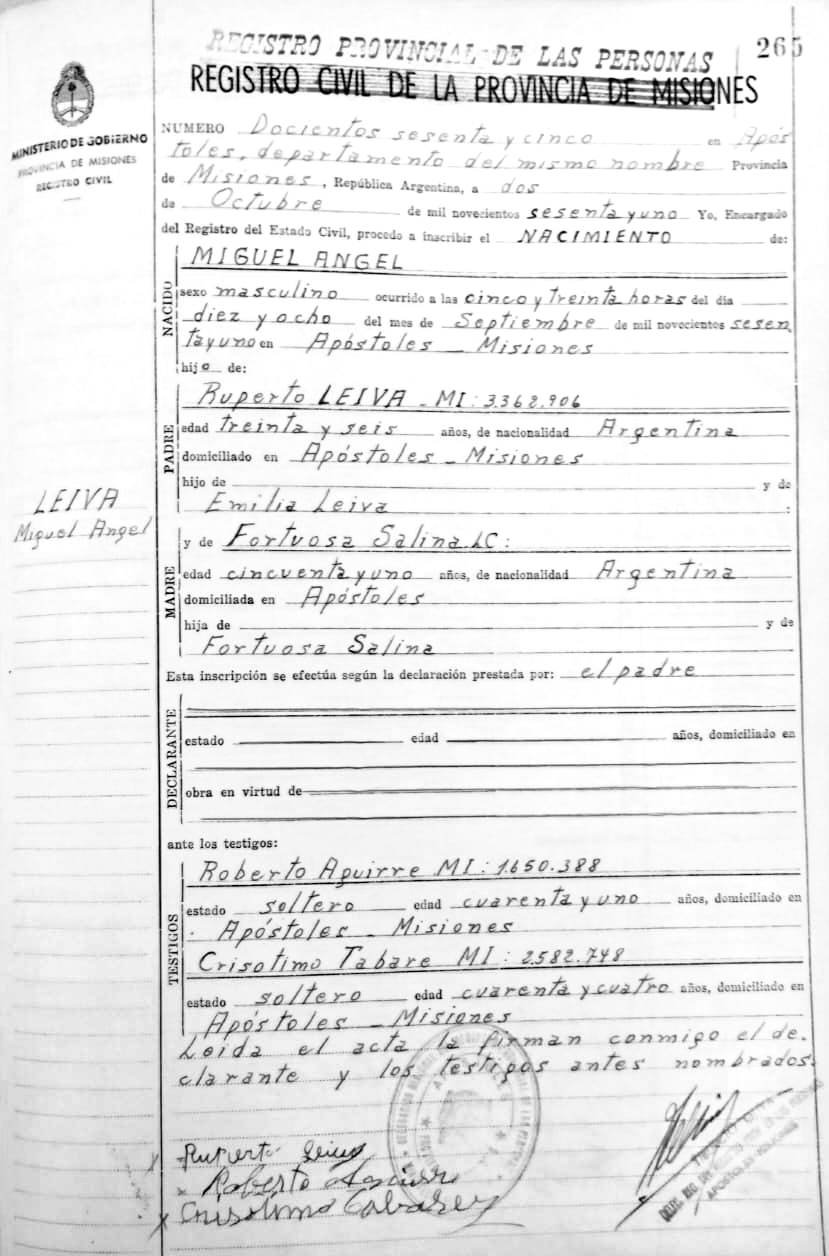 REGISTRO PROVINCIAL DE LAS PERSONAS
265
REGISTRO CIVIL DE LA PROVINCIA DE MISIONES
MINISTERIO DE GOBIERNO
PROVINCIA DE MISIONES
REGISTRO CIVIL
NUMERO Docientos sesenta y cinco en Após
toles, departamento del mismo nombre Provincia
de Misiones, República Argentina, a dos
de Octubre de mil novecientos sesenta y uno Yo, Encargado
del Registro del Estado Civil, procedo a inscribir el NACIMIENTO de:
NACIDO
MIGUEL ANGEL
sexo masculino ocurrido a las cinco y treinta horas del día
diez y ocho del mes de Septiembre de mil novecientos sesen
ta y uno en Apóstoles _ Misiones
hijo de:
PADRE
Ruperto LEIVA - MI: 3.362.906
edad treinta y seis años, de nacionalidad Argentina
domiciliado en Apóstoles _ Misiones
hijo de y de
Emilia Leiva :
LEIVA
Miguel Angel
MADRE
y de Fortuosa Salina LC:
edad cincuenta y uno años, de nacionalidad Argentina
domiciliada en Apóstoles
hija de y de
Fortuosa Salina
Esta inscripción se efectúa según la declaración prestada por: el padre
DECLARANTE
estado edad años, domiciliado en
obra en virtud de
ante los testigos:
TESTIGOS
Roberto Aguirre MI: 1.650.388
estado soltero edad cuarenta y uno años, domiciliado en
Apóstoles _ Misiones
Crisotimo Tabare MI: 2.582.748
estado soltero edad cuarenta y cuatro años, domiciliado en
Apóstoles _ Misiones
Leida el acta la firman conmigo el de.
clarante y los testigos antes nombrados.
Ruperto Leiva
Roberto Aguirre
APOSTOLES-MISIONES